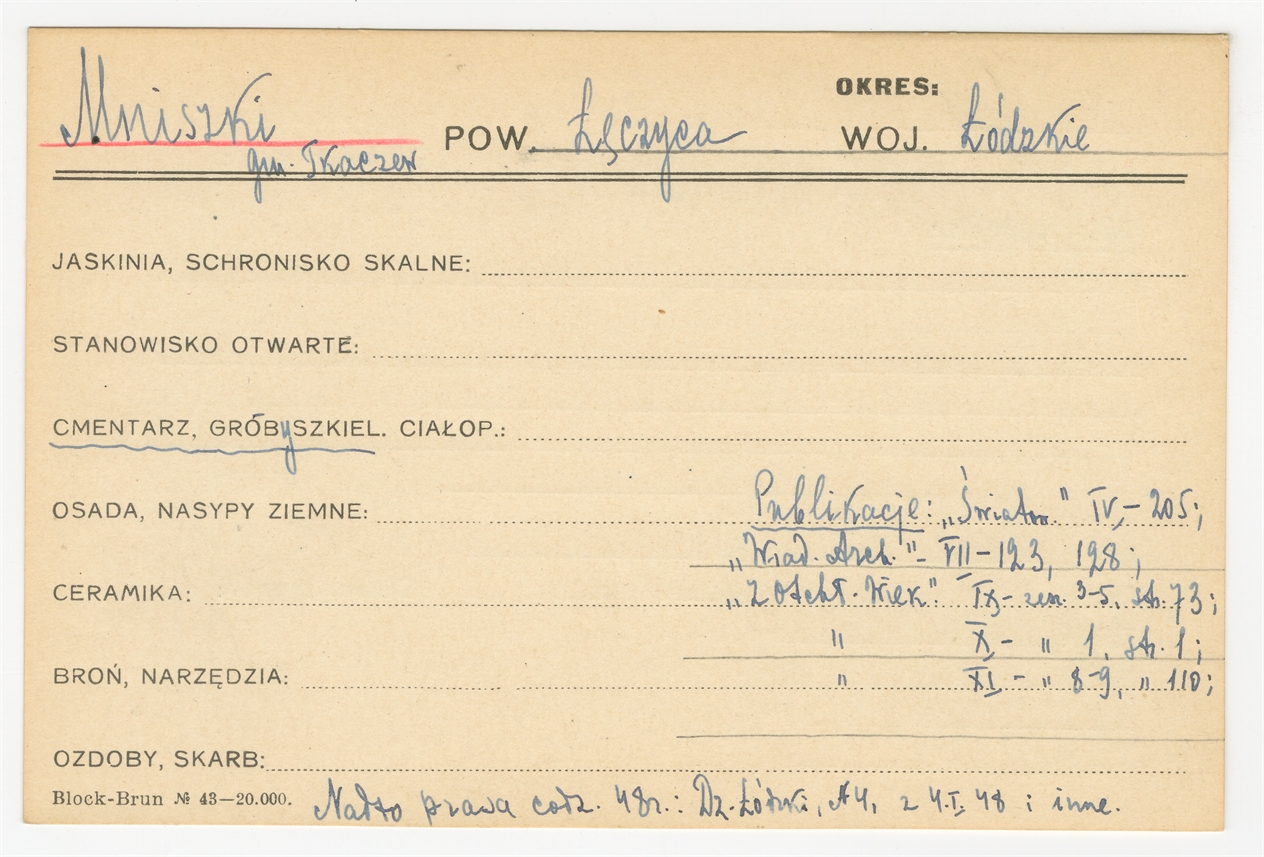 OKRES:
Mniszki POW. Łęczyca WOJ. Łódzkie
gm. Tkaczew
JASKINIA, SCHRONISKO SKALNE:
STANOWISKO OTWARTE:
CMENTARZ, GRÓBY SZKIEL. CIAŁOP.:
OSADA, NASYPY ZIEMNE: Publikacje: „Światow." IV,- 205;
„Wiad. Arch."- VII - 123, 128;
CERAMIKA: „Z Otchł. Wiek" IX,- zesz. 3-5, str. 73;
" X,- " 1, str. 1;
BROŃ, NARZĘDZIA: " XI - " 8-9, " 110;
OZDOBY, SKARB:
Block-Brun № 43—20.000. Nadto prasa codz. 48r.: Dz. Łódzki, 4, z 4.I.48 i inne.